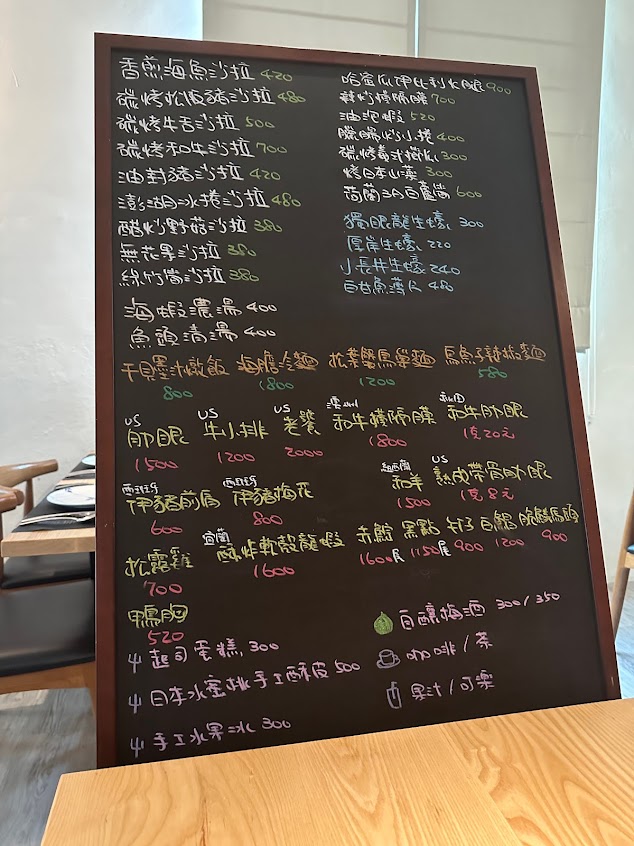 香煎海魚沙拉 420
碳烤松阪豬沙拉 480
碳烤牛舌沙拉 500
碳烤和牛沙拉 700
油封豬沙拉 420
澎湖小卷沙拉 480
醋炒野菇沙拉 380
無花果沙拉 380
綠竹筍沙拉 380
海蝦濃湯 400
魚頭清湯 400
哈蜜瓜伊比利火腿 900
辣炒橫隔膜 700
油泡蝦 520
臘腸炒小捲 400
碳烤義式 300
烤日本山藥 300
荷蘭3A白蘆筍 600
獨眼龍生蠔 300
厚岸生蠔 220
小長井生蠔 240
白甘魚薄片 480
干貝墨汁燉飯 海膽冷麵 松葉蟹鳥巢麵 烏魚子辣椒麵
800 1800 1200 580
US US US 澳洲 和田
肋眼 牛小排 老饕 和牛橫隔膜 和牛肋眼
1500 1200 2000 1800 1克20元
西班牙 西班牙 紐西蘭 US
伊豬前肩 伊豬梅花 和羊 熟成帶骨肋眼
600 800 1500 1克8元
宜蘭
松露雞 酥炸軟殼龍蝦 赤鯮 黑點 釘子 白鯧 脆鱗馬頭
700 1600 1600尾 1150尾 900 1200 900
鴨胸
520
起司蛋糕 300
日本水蜜桃手工酥皮 500
手工水果冰 300
自釀梅酒 300/350
咖啡/茶
果汁/可樂